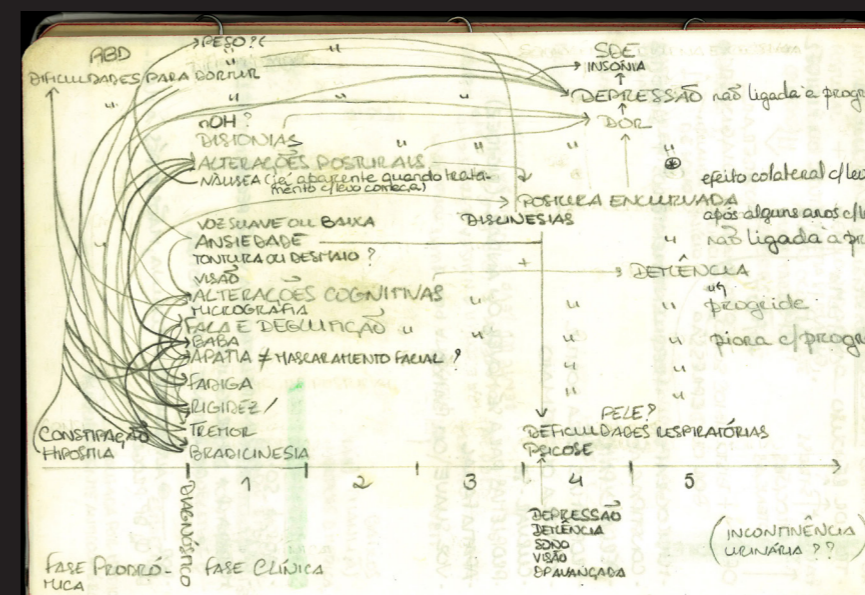 RBD
PESO?(
"
SDE
DIFICULDADES PARA DORMIR
"
INSÔNIA
"
"
"
"
DEPRESSÃO não ligada a progre
nOH?
DOR
DISTONIAS
"
"
"
"
ALTERAÇÕES POSTURAIS
NÁUSEA (já aparente quando trata-
mento c/levo começa)
efeito colateral c/lev
POSTURA ENCURVADA
VOZ SUAVE OU BAIXA
DISCINESIAS
após alguns anos c/l
ANSIEDADE
"
não ligada a pr
TONTURA OU DESMAIO?
+
DEMÊNCIA
VISÃO
ALTERAÇÕES COGNITIVAS
"
"
"
progride
MICROGRAFIA
FALA E DEGLUTIÇÃO
"
"
"
"
piora c/progre
BABA
APATIA ≠ MASCARAMENTO FACIAL?
"
"
FADIGA
"
"
RIGIDEZ/
PELE?
CONSTIPAÇÃO
TREMOR
DIFICULDADES RESPIRATÓRIAS
HIPOSMIA
BRADICINESIA
PSICOSE
1
2
3
4
5
DIAGNÓSTICO
DEPRESSÃO
DEMÊNCIA
SONO
VISÃO
DP AVANÇADA
(INCONTINÊNCIA
URINÁRIA??)
FASE PRODRÔ-
MICA
FASE CLÍNICA